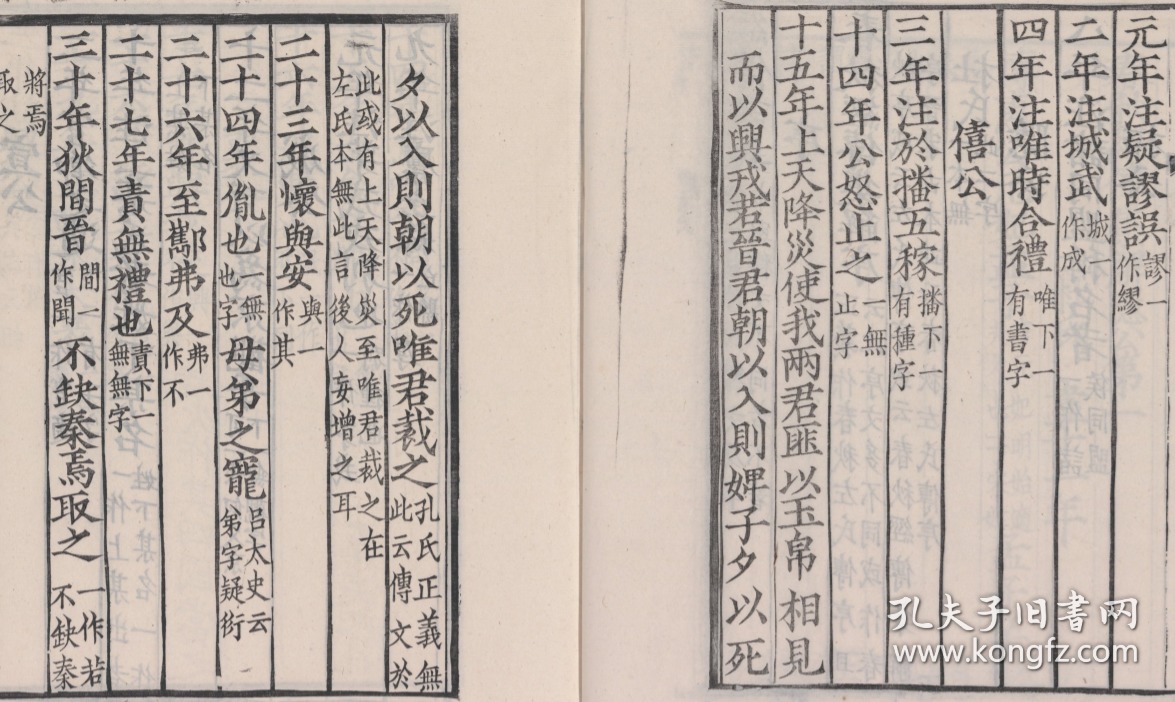 元年注疑謬誤謬一作繆
二年注城武城一作成
四年注唯時合禮唯下一有書字
僖公
三年注於播五稼播下一有種字
十四年公怒止之一無止字
十五年上天降災使我兩君匪以玉帛相見
而以興戎若晉君朝以入則婢子夕以死
夕以入則朝以死唯君裁之孔氏正義無此云傳文於
此或有上天降災至唯君裁之在左氏本無此言後人妄增之耳
二十三年懷與安與一作其
二十四年胤也一無也字母弟之寵呂太史云弟字疑衍
二十六年至酅弗及弗一作不
二十七年責無禮也責下一無無字
三十年狄間晉間一作聞不缺秦焉取之一作若不缺秦
將焉取之
孔夫子旧书网
www.kongfz.com